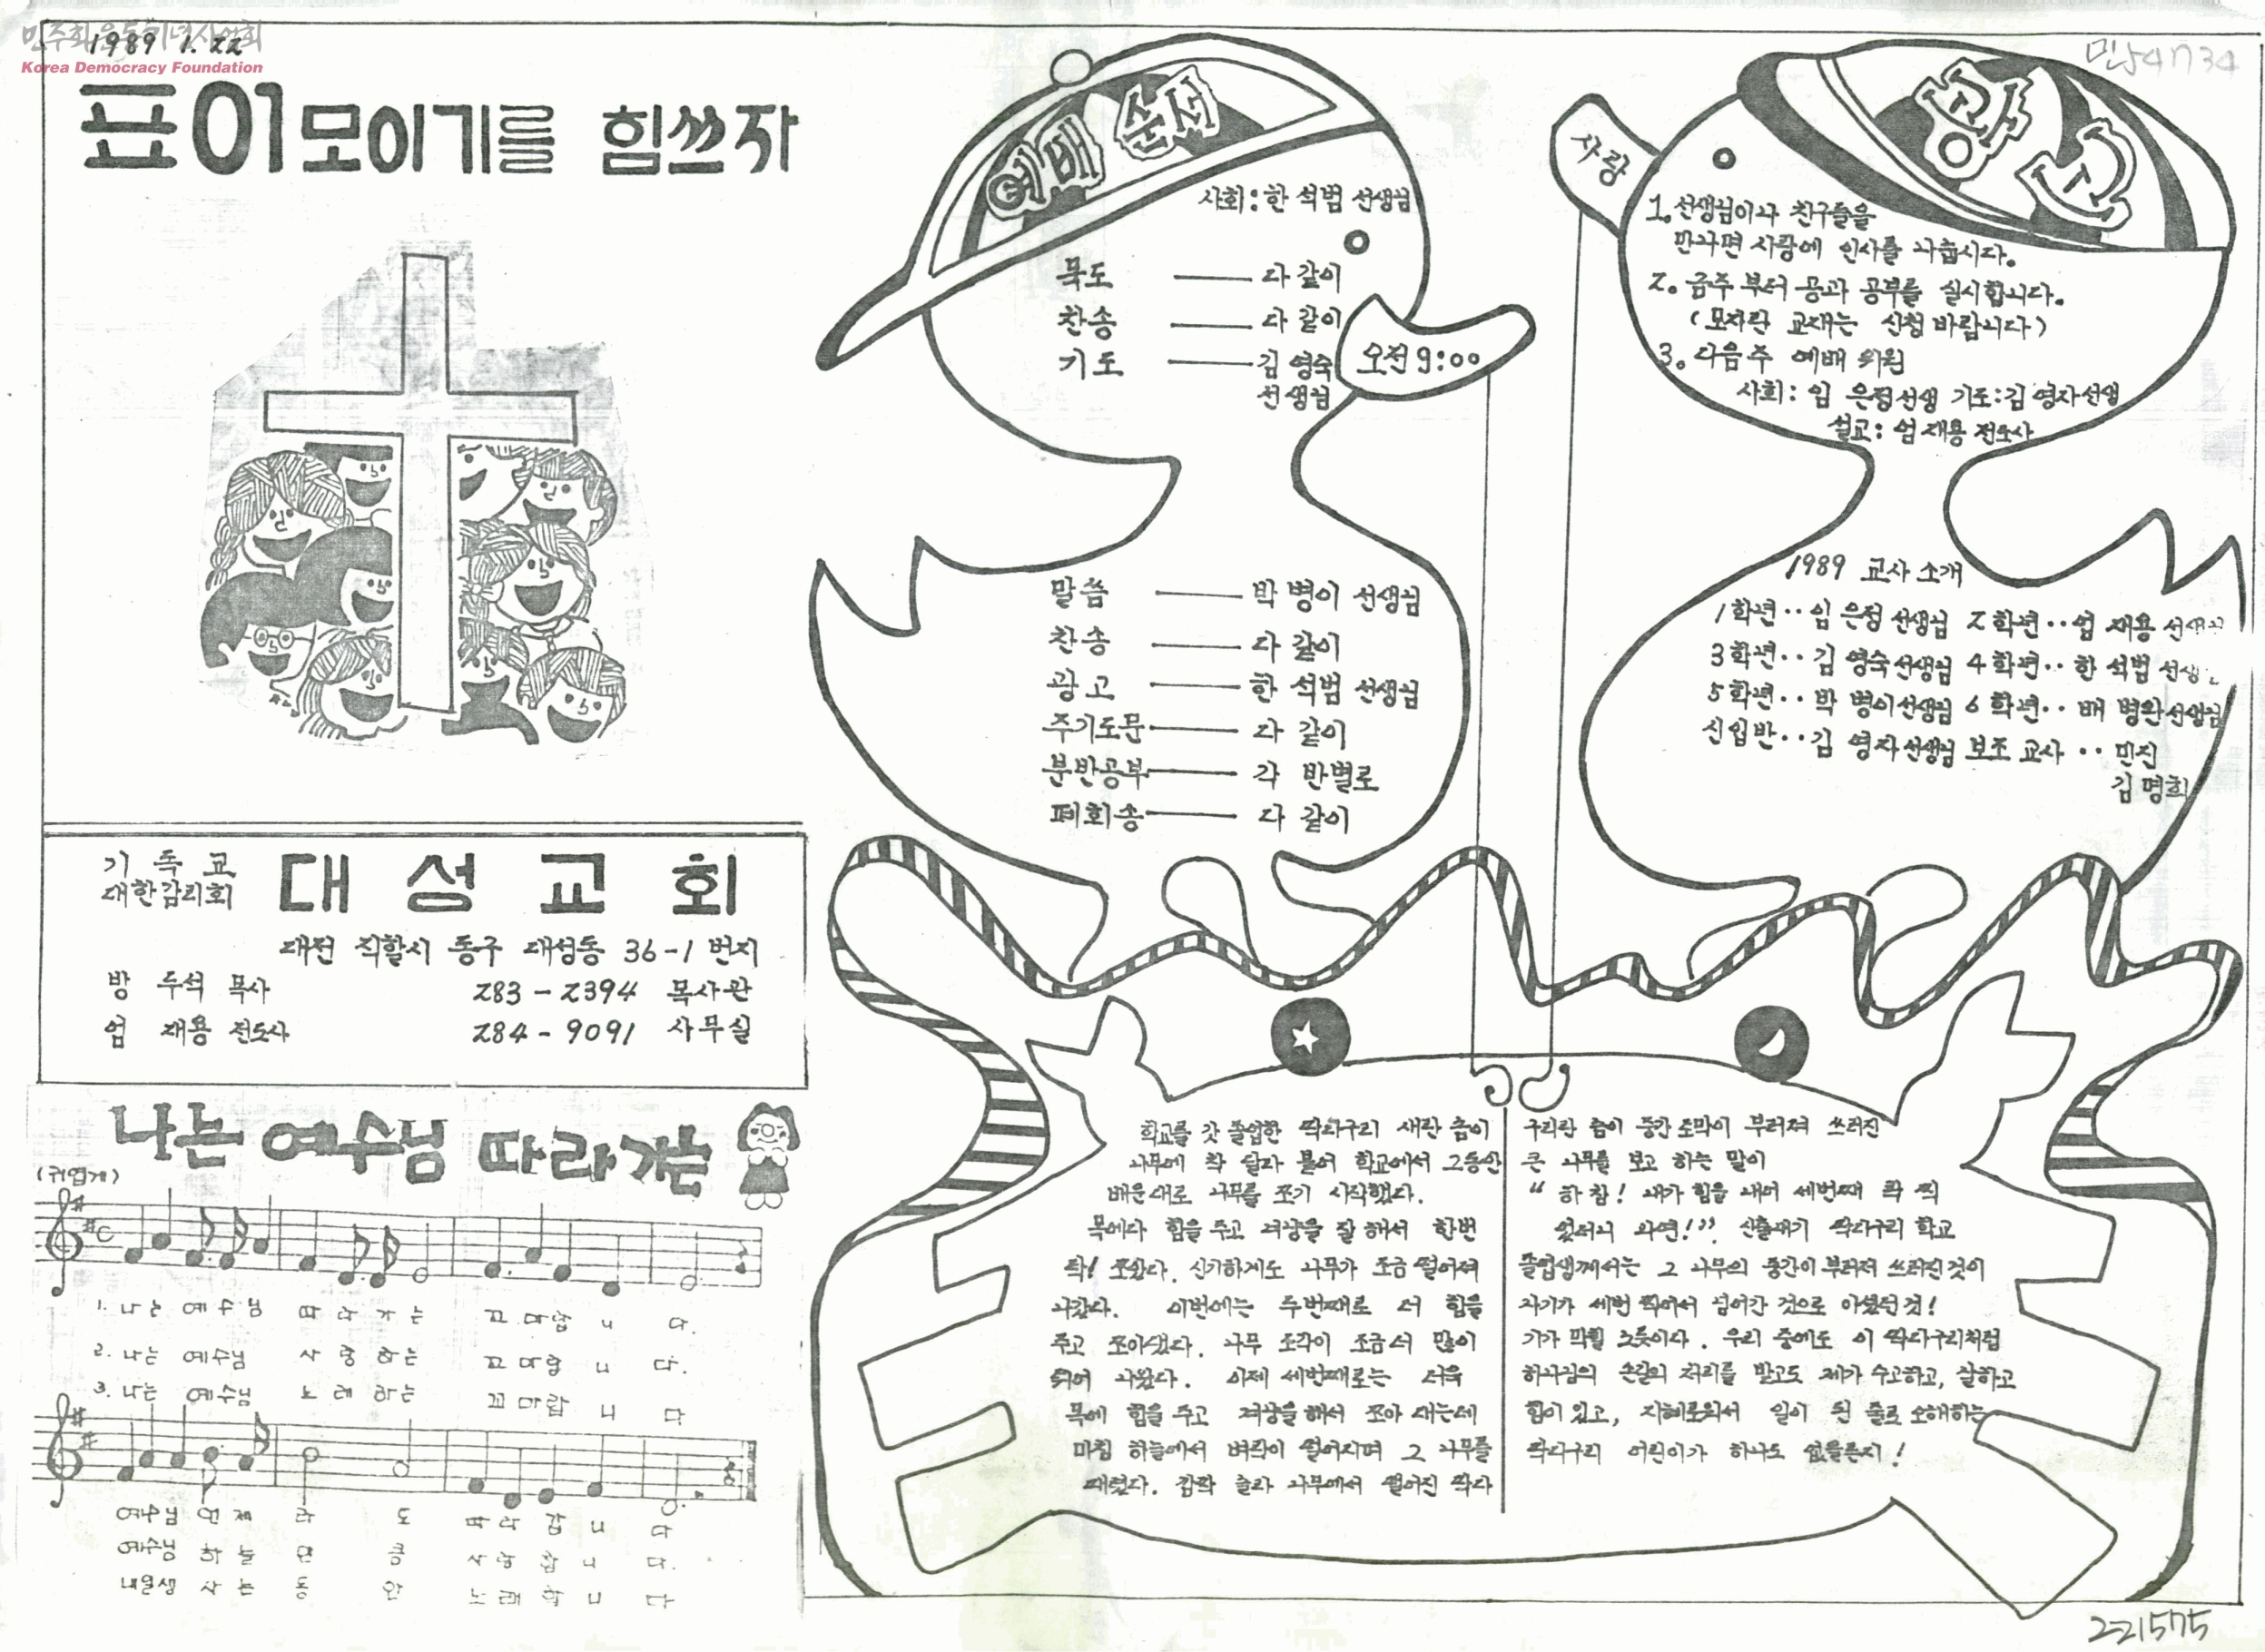 민주화운동기념사업회
Korea Democracy Foundation
1989 1. 22
민54734
표이 모이기를 힘쓰자
기 독 교
대한감리회
대 성 교 회
대전 직할시 동구 대성동 36-1 번지
방 두석 목사 283-2394 목사관
엄 재용 전도사 284-9091 사무실
나는 예수님 따라가는
(귀엽게)
1. 나는 예수님 따라가는 꼬마랍니다.
2. 나는 예수님 사랑하는 꼬마랍니다.
3. 나는 예수님 노래하는 꼬마랍니다
예수님 언제라도 따라갑니다
예수님 하늘만큼 사랑합니다.
내일생 사는동안 노래합니다
예배 순서
사회: 한 석범 선생님
묵도 다 같이
찬송 다 같이
기도 김 영숙
선생님
오전 9:00
말씀 박 병이 선생님
찬송 다 같이
광고 한 석범 선생님
주기도문 다 같이
분반공부 각 반별로
폐회송 다 같이
광고
사랑
1. 선생님이나 친구들을
만나면 사랑에 인사를 나눕시다.
2. 금주 부터 공과 공부를 실시합니다.
(모자란 교재는 신청 바랍니다)
3. 다음주 예배 위원
사회: 임 은정선생 기도: 김 영자선생
설교: 엄 재용 전도사
1989 교사 소개
1학년‥임 은정 선생님 2학년‥엄 재용 선생님
3학년‥김 영숙선생님 4학년‥한 석범 선생
5학년‥박 병이선생님 6학년‥배 병완선생님
신입반‥김 영자선생님 보조 교사‥민진
김명희
학교를 갓 졸업한 딱다구리 새란 놈이
나무에 착 달라 붙어 학교에서 그동안
배운대로 나무를 쪼기 시작했다.
목에다 힘을 주고 겨냥을 잘 해서 한번
탁! 쪼았다. 신기하게도 나무가 조금 떨어져
나갔다. 이번에는 두번째로 더 힘을
주고 쪼아댔다. 나무 조각이 조금더 많이
되어 나왔다. 이제 세번째로는 더욱
목에 힘을 주고 겨냥을 해서 쪼아 대는데
마침 하늘에서 벼락이 떨어지며 그 나무를
때렸다. 깜짝 놀라 나무에서 떨어진 딱다
구리란 놈이 중간 도막이 부러져 쓰러진
큰 나무를 보고 하는 말이
"하 참! 내가 힘을 내어 세번째 콱 찍
었더니 과연!". 신출내기 딱다구리 학교
졸업생께서는 그 나무의 중간이 부러져 쓰러진것이
자기가 세번 찍어서 넘어간 것으로 아셨던 것!
기가 막힐 노릇이다. 우리 중에도 이 딱다구리처럼
하나님의 손길의 처리를 받고도 제가 수고하고, 잘하고
힘이 있고, 지혜로와서 일이 된 줄로 오해하는
딱다구리 어린이가 하나도 없을른지!
221575